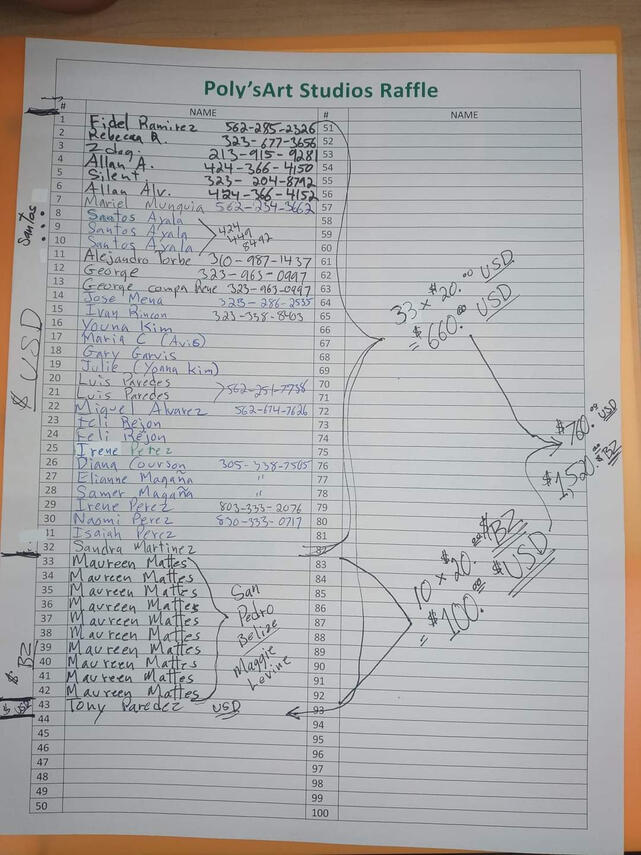 Poly'sArt Studios Raffle
# NAME # NAME
1 Fidel Ramirez 562-285-2326 51
2 Rebecca R. 323-677-3656 52
3 Zdog 213-915-9281 53
4 Allan A. 424-366-4150 54
5 Silent 323-204-8792 55
6 Allan Alv. 424-366-4152 56
7 Mariel Munguia 562-234-3662 57
8 Santos Ayala 58
9 Santos Ayala 424 449 8492 59
10 Santos Ayala 60
11 Alejandro Torbe 310-987-1437 61
12 George 323-963-0997 62
13 George compa Rene 323-963-0997 63
14 Jose Mena 323-286-2535 64
15 Ivan Rincon 323-338-8403 65
16 Youna Kim 66
17 Maria C (Avis) 67
18 Gary Garvis 68
19 Julie (Youna Kim) 69
20 Luis Paredes 562-251-7738 70
21 Luis Paredes 71
22 Miguel Alvarez 562-674-7626 72
23 Feli Rejon 73
24 Feli Rejon 74
25 Irene Perez 75
26 Diana Courson 305-338-7505 76
27 Elianne Magaña " 77
28 Samer Magaña " 78
29 Irene Perez 803-333-2076 79
30 Naomi Perez 830-333-0717 80
31 Isaiah Perez 81
32 Sandra Martinez 82
33 Maureen Mattes 83
34 Maureen Mattes 84
35 Maureen Mattes 85
36 Maureen Mattes 86
37 Maureen Mattes 87
38 Maureen Mattes 88
39 Maureen Mattes 89
40 Maureen Mattes 90
41 Maureen Mattes 91
42 Maureen Mattes 92
43 Tony Paredez USD 93
44 94
45 95
46 96
47 97
48 98
49 99
50 100
San
Pedro
Belize
Maggie
Levine
33 x $20.00 USD
= $660.00 USD
$760.00 USD
$1,520.00 $BZ
10 x $20.00 $BZ
= $100.00 $USD
Santos
$ USD
$ BZ
$ USD